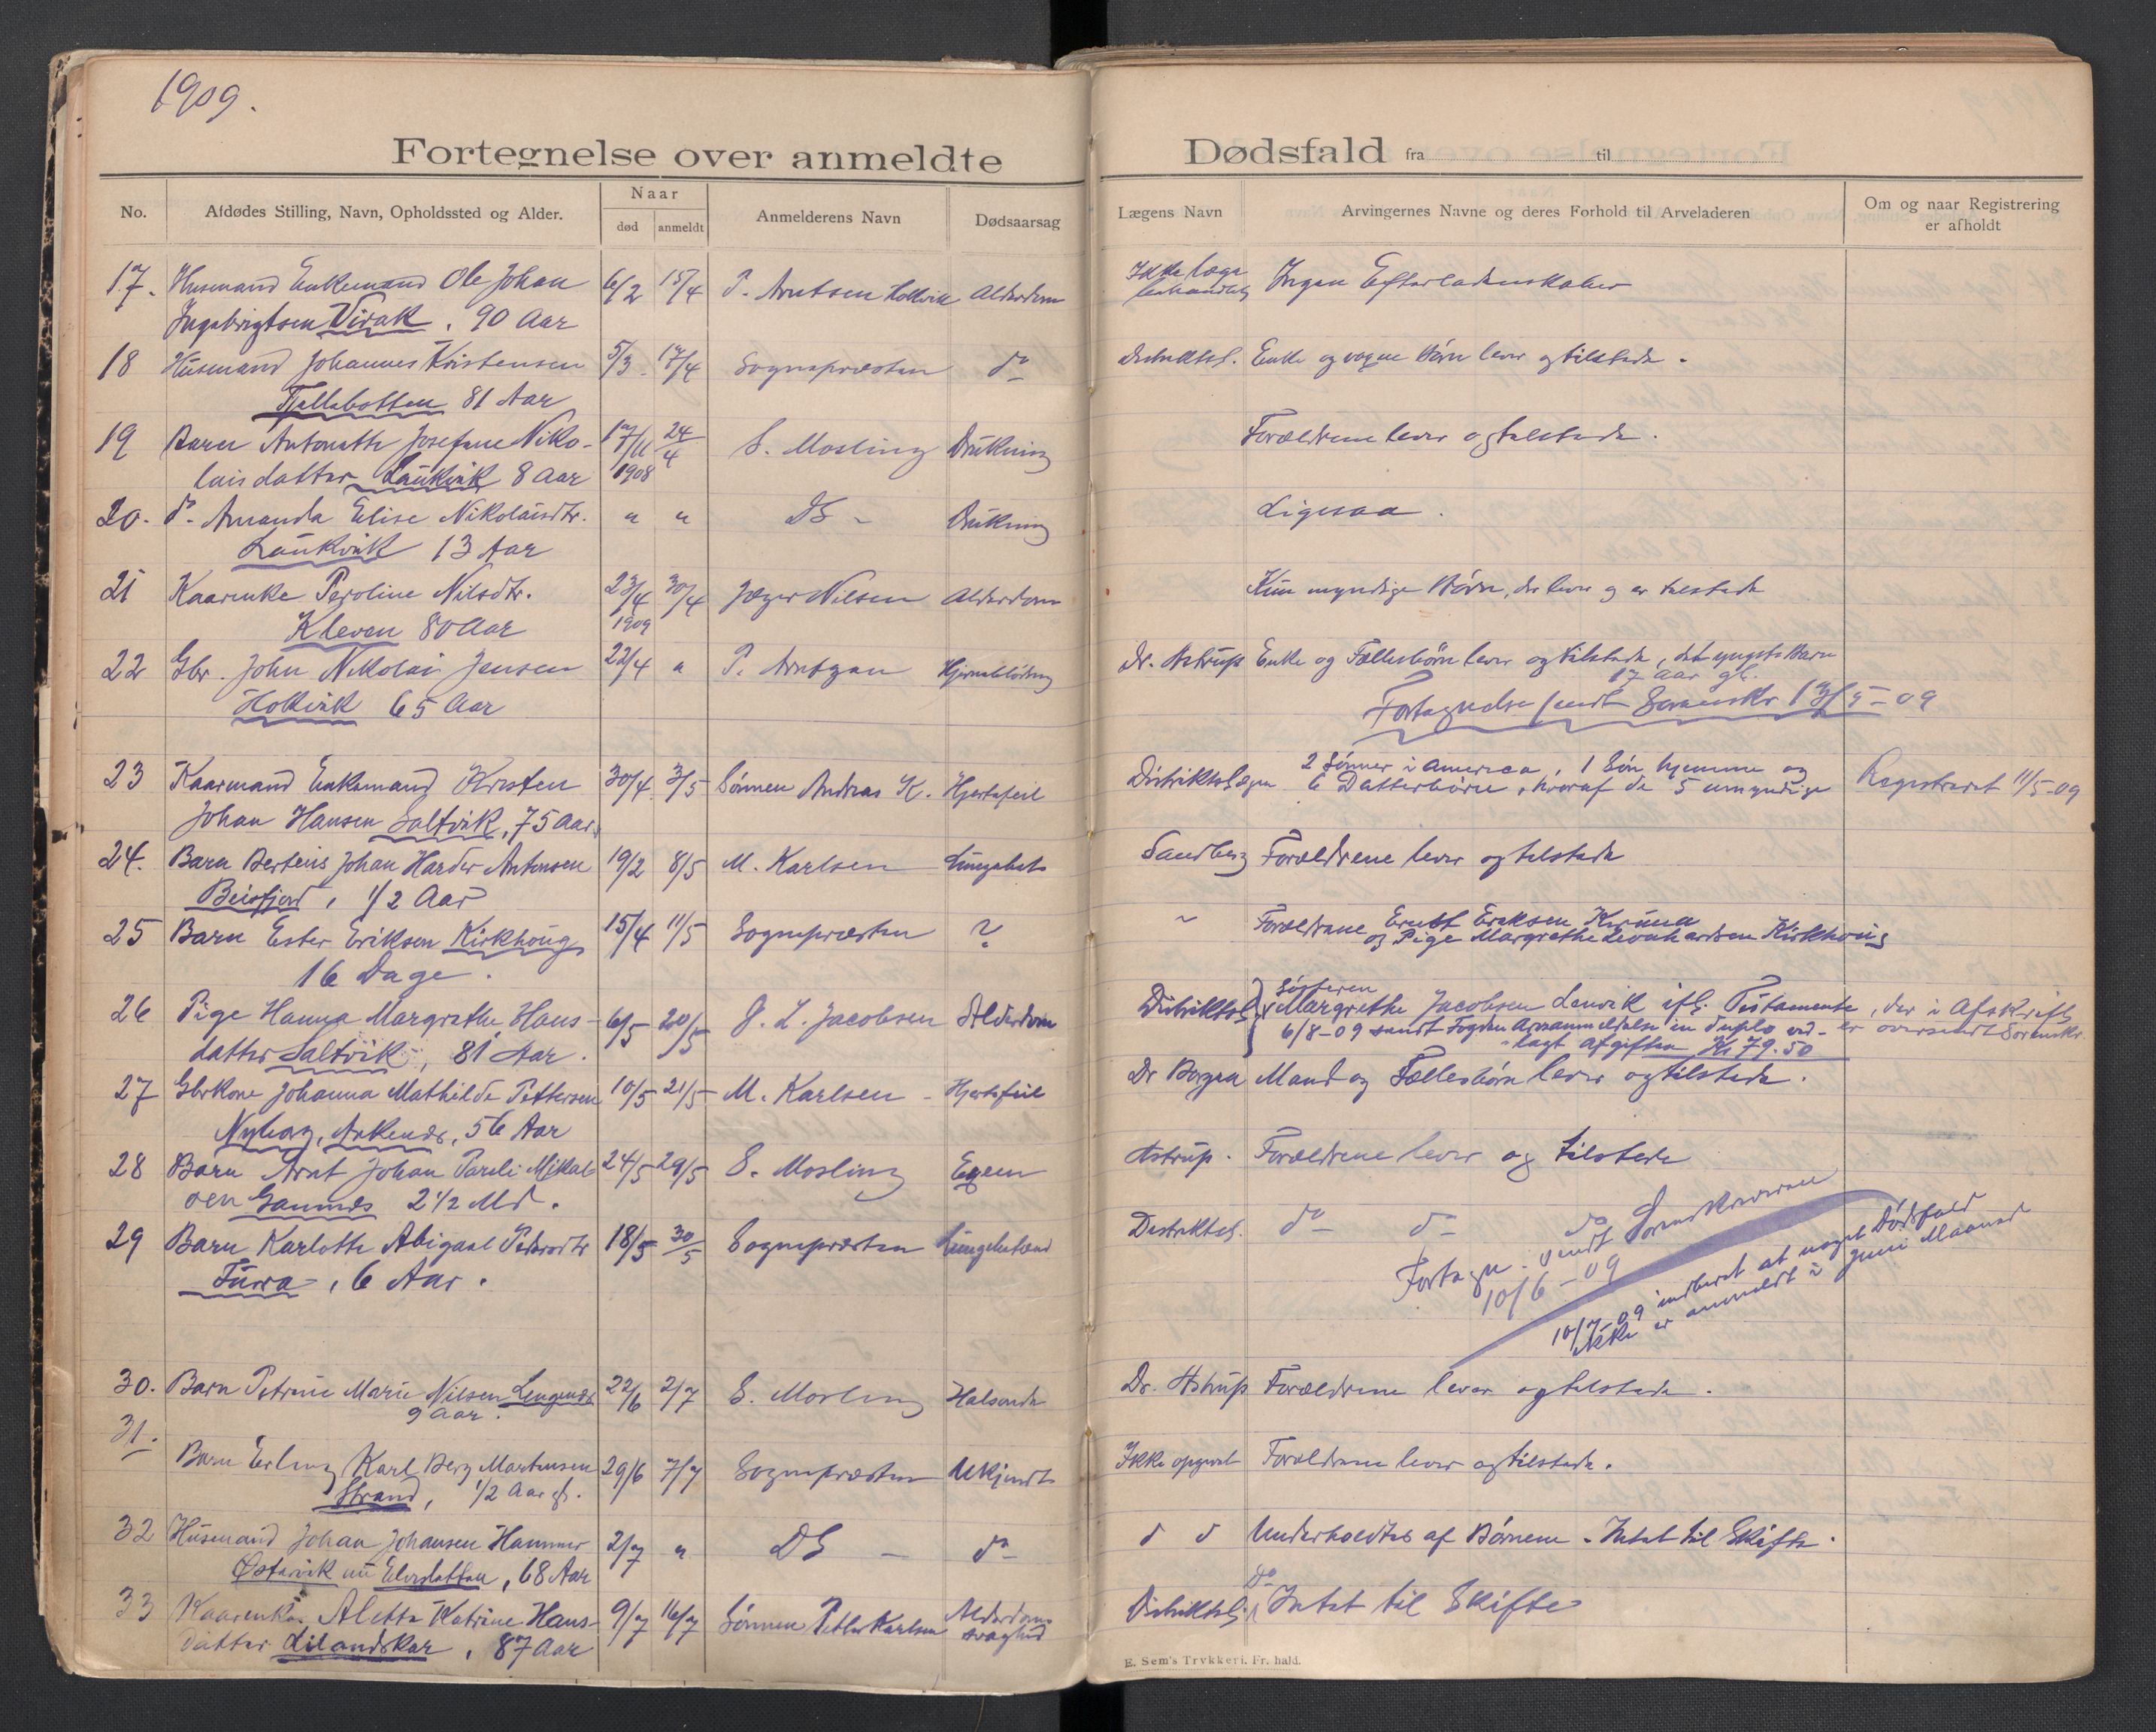 1909.
Fortegnelse over anmeldte Dødsfald fra til
No. Afdødes Stilling, Navn, Opholdssted og Alder. Naar død anmeldt Anmelderens Navn Dødsaarsag Lægens Navn Arvingernes Navne og deres Forhold til Arveladeren Om og naar Registrering er afholdt
17. Husmand Enkemand Ole Johan 6/2 15/4 P. Arntsen Holkvik Alderdom Ikke læge Ingen Efterladenskaber
Ingebrigtsen Virak, 90 Aar behandlet
18 Husmand Johannes Kristensen 5/3 17/4 Sognepræsten do Distriktsl. Enke og voxne Børn lever og tilstede.
Fjellebotten 81 Aar
19 Barn Antonette Josefine Niko- 17/11 24/4 S. Mosling Drukning Forældrene lever og tilstede.
laisdatter Laukvik 8 Aar 1908
20. do. Amanda Elise Nikolaisdtr. " " DS - Drukning Ligesaa.
Laukvik 13 Aar
21 Kaarenke Peroline Nilsdtr. 23/4 30/4 Jæger Nilsen Alderdom Kun myndige Børn, der lever og er tilstede
Kleven 80 Aar 1909
22 Gbr. John Nikolai Jensen 22/4 " P. Arntzen Hjerneblødning Dr. Astrup Enke og Fællesbørn lever og tilstede, det yngste Barn
17 Aar gl.
Holkvik 65 Aar Fortegnelse sendt Sorenskr 13/5-09
23 Kaarmand Enkemand Kristen 30/4 3/5 Sønnen Andreas K. Hjertefeil Distriktslægen 2 Sønner i America, 1 Søn hjemme og
6 Datterbørn, hvoraf de 5 umyndige Registreret 11/5-09
Johan Hansen Saltvik, 75 Aar.
24. Barn Berteus Johan Harder Antonsen 19/2 8/5 M. Karlsen Lungebet. Sandberg Forældrene lever og tilstede
Beisfjord, 1/2 Aar
25 Barn Ester Eriksen Kirkhoug 15/4 11/5 Sognepræsten ? " Forældrene Ernst Eriksen Kiruna
og Pige Margrethe Leonhardsen Kirkhoug
16 Dage.
26 Pige Hanna Margrethe Hans- 6/5 20/5 J. L. Jacobsen Alderdom Distriktsl. Søsteren
Margrethe Jacobsen Lenvik ifl. Testamente, der i Afskrift
datter Saltvik, 81 Aar. 6/8-09 sendt Fogden Arveanmeldelse in duplo ved- er oversendt Sorenskr
lagt Afgiften Kr 79.50
27 Gbrkone Johanna Mathilde Pettersen 10/5 21/5 M. Karlsen - Hjertefeil Dr Borgen Mand og Fællesbørn lever og tilstede.
Nyborg, Ankenes, 56 Aar
28 Barn Arnt Johan Pareli Mikal- 24/5 29/5 S. Mosling Exem Astrup. Forældrene lever og tilstede
sen Gamnes 2 1/2 Md.
29 Barn Karlotte Abigael Pedersdtr 18/5 30/5 Sognepræsten Lungebetænd Distriktsl. do do do
Furra, 6 Aar. Fortegn. sendt Sorenskriveren
10/6-09
10/7-09 indberet at noget Dødsfald
ikke er anmeldt i Juni Maaned
30. Barn Petrine Marie Nilsen Lengenes 22/6 2/7 S. Mosling Halsonde Dr. Astrup Forældrene lever og tilstede.
9 Aar.
31. Barn Erling Karl Berg Martensen 29/6 7/7 Sognepræsten Ukjendt Ikke opgivet Forældrene lever og tilstede.
Strand, 1/2 Aar gl.
32 Husmand Johan Johansen Hammer 2/7 " DS - do d d Underholdtes af Børnene. Intet til Skifte.
Østervik nu Elvesletten, 68 Aar
33 Kaarenke Aletta Katrine Hans- 9/7 16/7 Sønnen Petter Karlsen Alderdoms Distriktsl. do Intet til Skifte
datter Lilandskar, 87 Aar svaghed
E. Sem's Trykkeri, Fr. hald.